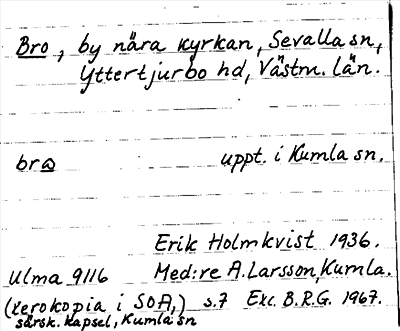 Bro, by nära kyrkan, Sevalla sn,
Yttertjurbo hd, Västm. län.
bra uppt. i Kumla sn.
Erik Holmkvist 1936.
Ulma 9116 Med:re A. Larsson, Kumla.
(xerokopia i SOA,) s.7 Exc. B.R.G. 1967.
särsk. kapsel, Kumla sn